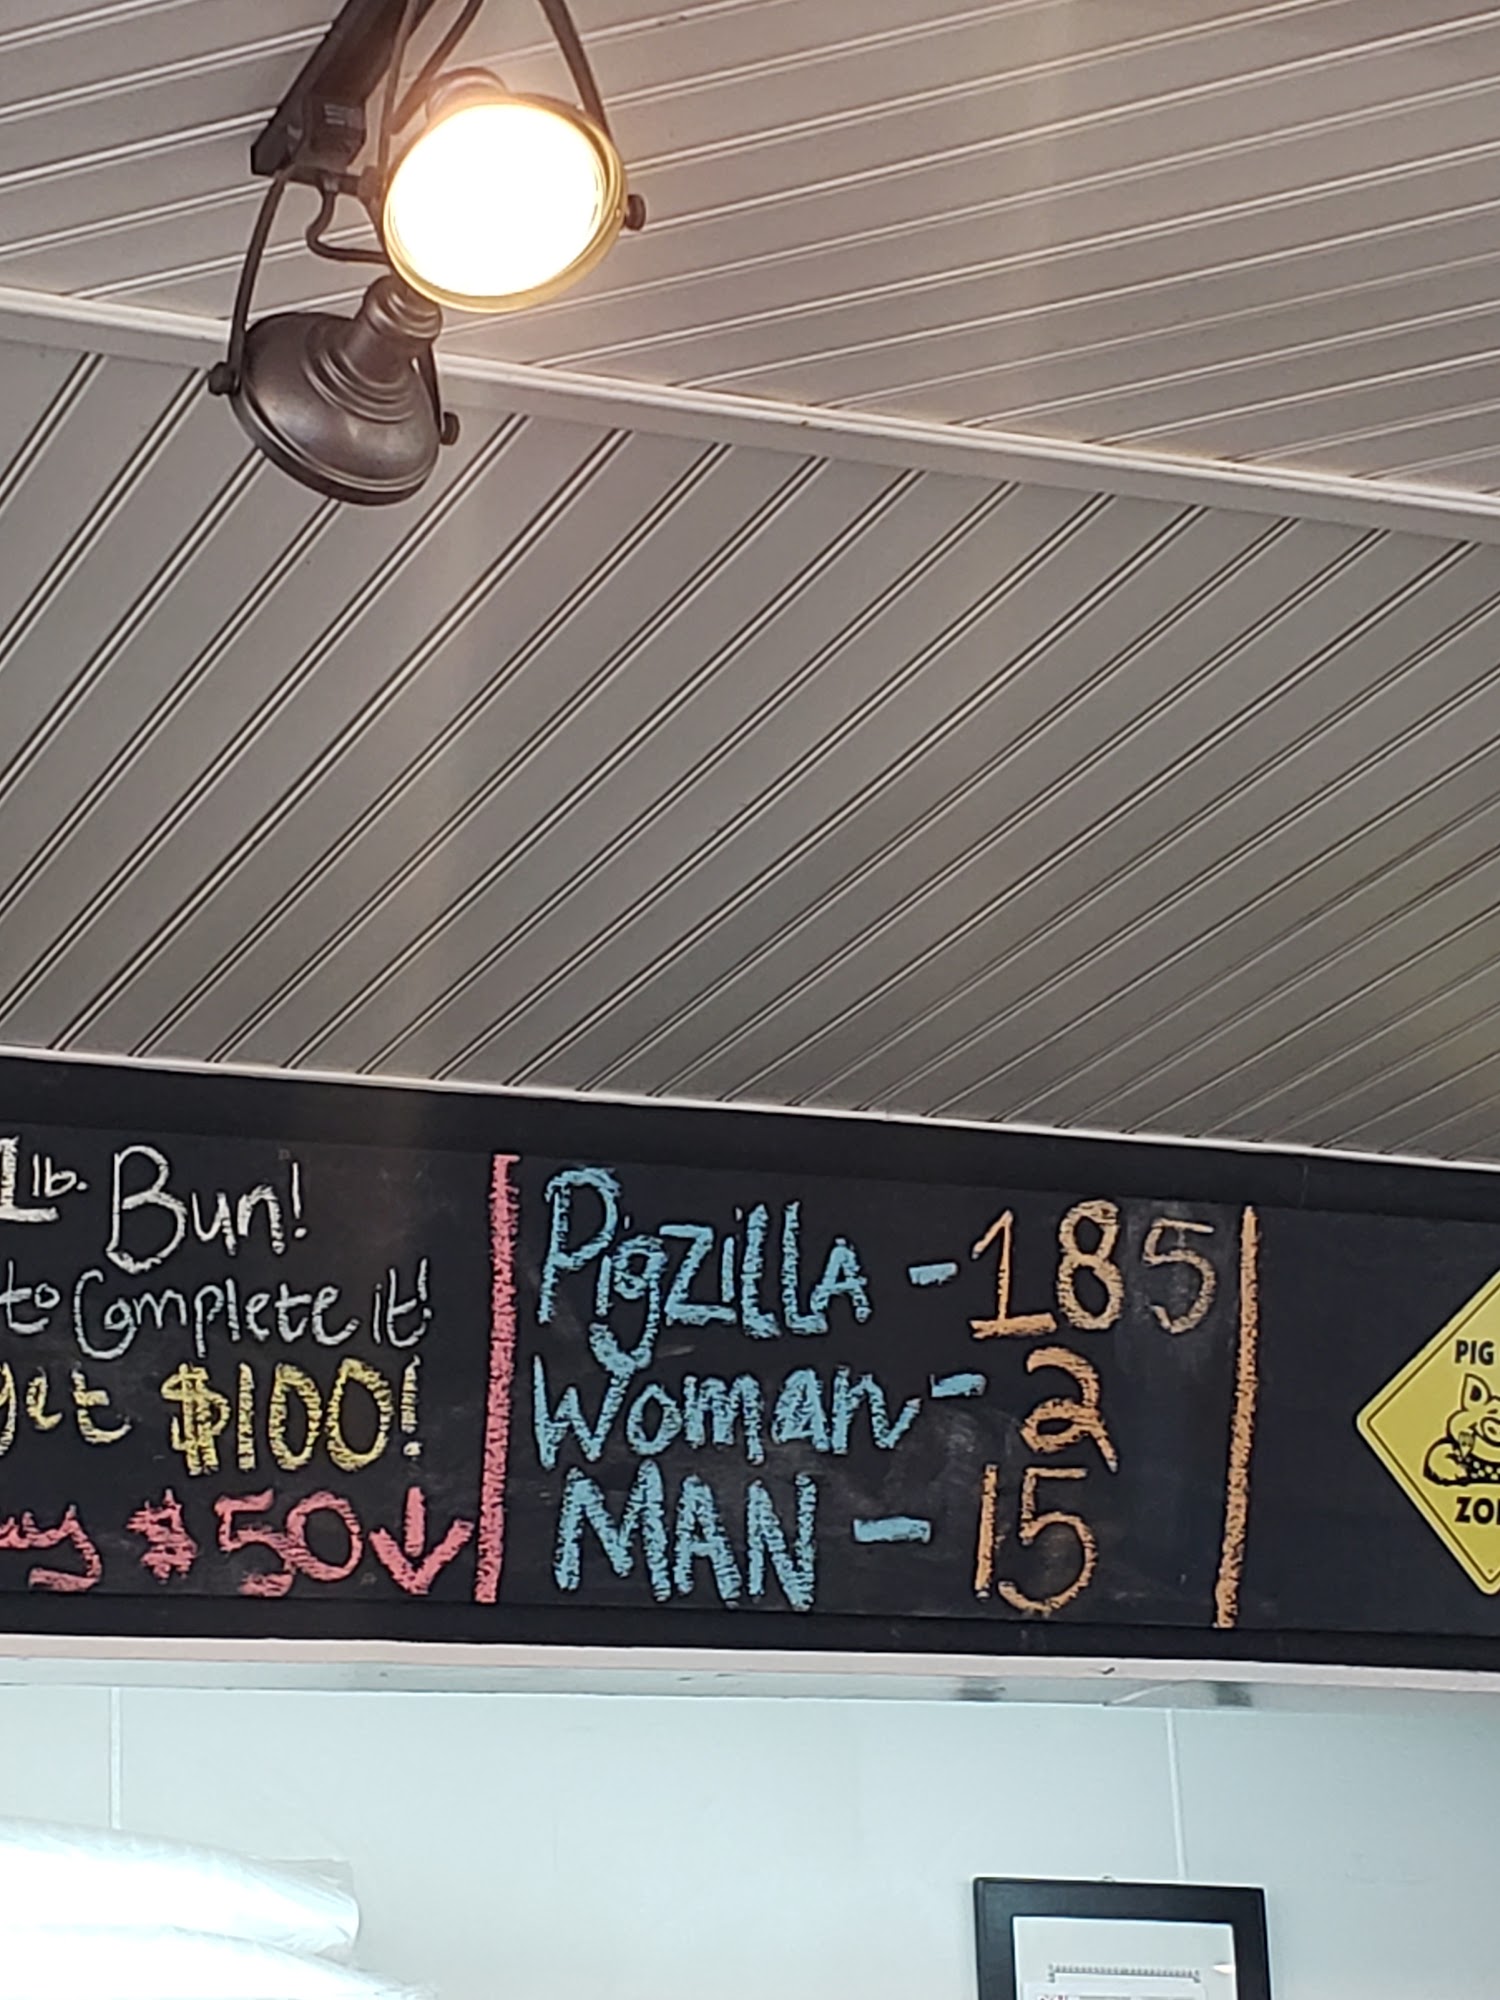 1 lb. Bun!
to Complete it!
get $100!
$50
Pigzilla - 185
Woman - 2
MAN - 15
PIG